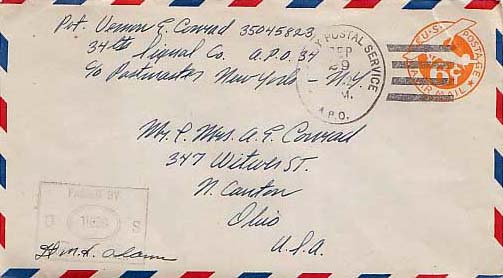 Pvt. Vernon E. Conrad 35045823
34th Signal Co. A.P.O. 34
c/o Postmaster New York - N.Y.
Y POSTAL SERVICE
SEP
29
M.
A.P.O.
U.S. POSTAGE
6c
AIR MAIL
Mr. & Mrs. A. E. Conrad
347 Witwer ST.
N. Canton
Ohio
U.S.A.
PASSED BY
U S